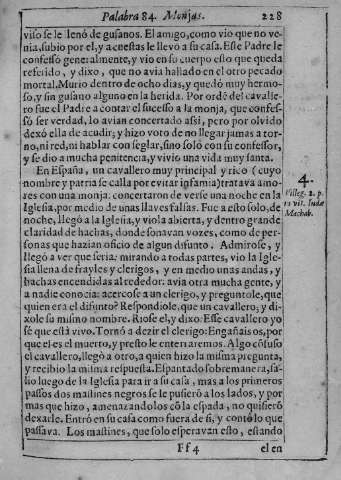 Palabra 84. Monjas. 228
viso se le llenó de gusanos. El amigo, como vio que no ve-
nia, subio por el, y acuestas le lleuò a su casa. Este Padre le
confessò generalmente, y vio en su cuerpo esto que queda
referido, y dixo, que no auia hallado en el otro pecado
mortal. Murio dentro de ocho dias, y quedò muy hermo-
so, y sin gusano alguno en la herida. Por ordẽ del cavalle-
ro fue el Padre a contar el sucesso a la monja, que confes-
sò ser verdad, lo avian concertado assi, pero por olvido
dexò ella de acudir, y hizo voto de no llegar jamas a tor-
no, ni red, ni hablar con seglar, sino solo con su confessor,
y se dio a mucha penitencia, y viviò una vida muy santa.
En España, un cavallero muy principal y rico (cuyo
nombre y patria se calla por evitar infamia) tratava amo-
res con una monja: concertaron de verse una noche en la
Iglesia, por medio de unas llaves falsas. Fue a esto solo, de
noche, llegò a la Iglesia, y viola abierta, y dentro grande
claridad de hachas, donde sonavan vozes, como de per-
sonas que hazian oficio de algun difunto. Admirose, y
llegò a ver que seria: mirando a todas partes, vio la Igle-
sia llena de frayles y clerigos, y en medio unas andas, y
hachas encendidas al rededor: avia otra mucha gente, y
a nadie conocia: acercose a un clerigo, y preguntole, que
quien era el difunto? Respondiole, que un cavallero, y di-
xole su mismo nombre. Riose el, y dixo: Esse cavallero yo
sè que està vivo. Tornò a dezir el clerigo: Engañaisos, por
que el es el muerto, y presto le enterraremos. Algo cõfuso
el cavallero, llegò a otro, a quien hizo la misma pregunta,
y recibio la misma respuesta. Espantado sobremanera, sa-
lio luego de la Iglesia para ir a su casa, mas a los primeros
passos dos mastines negros se le pusierõ a los lados, y por
mas que hizo, amenazandolos cõ la espada, no quisierõ
dexarle. Entrò en su casa como fuera de si, y contò lo que
passava. Los mastines, que solo esperavan esto, estando
Ff4 el en
4.
Villeg. 2. p.
12 vit. Iudæ
Machab.